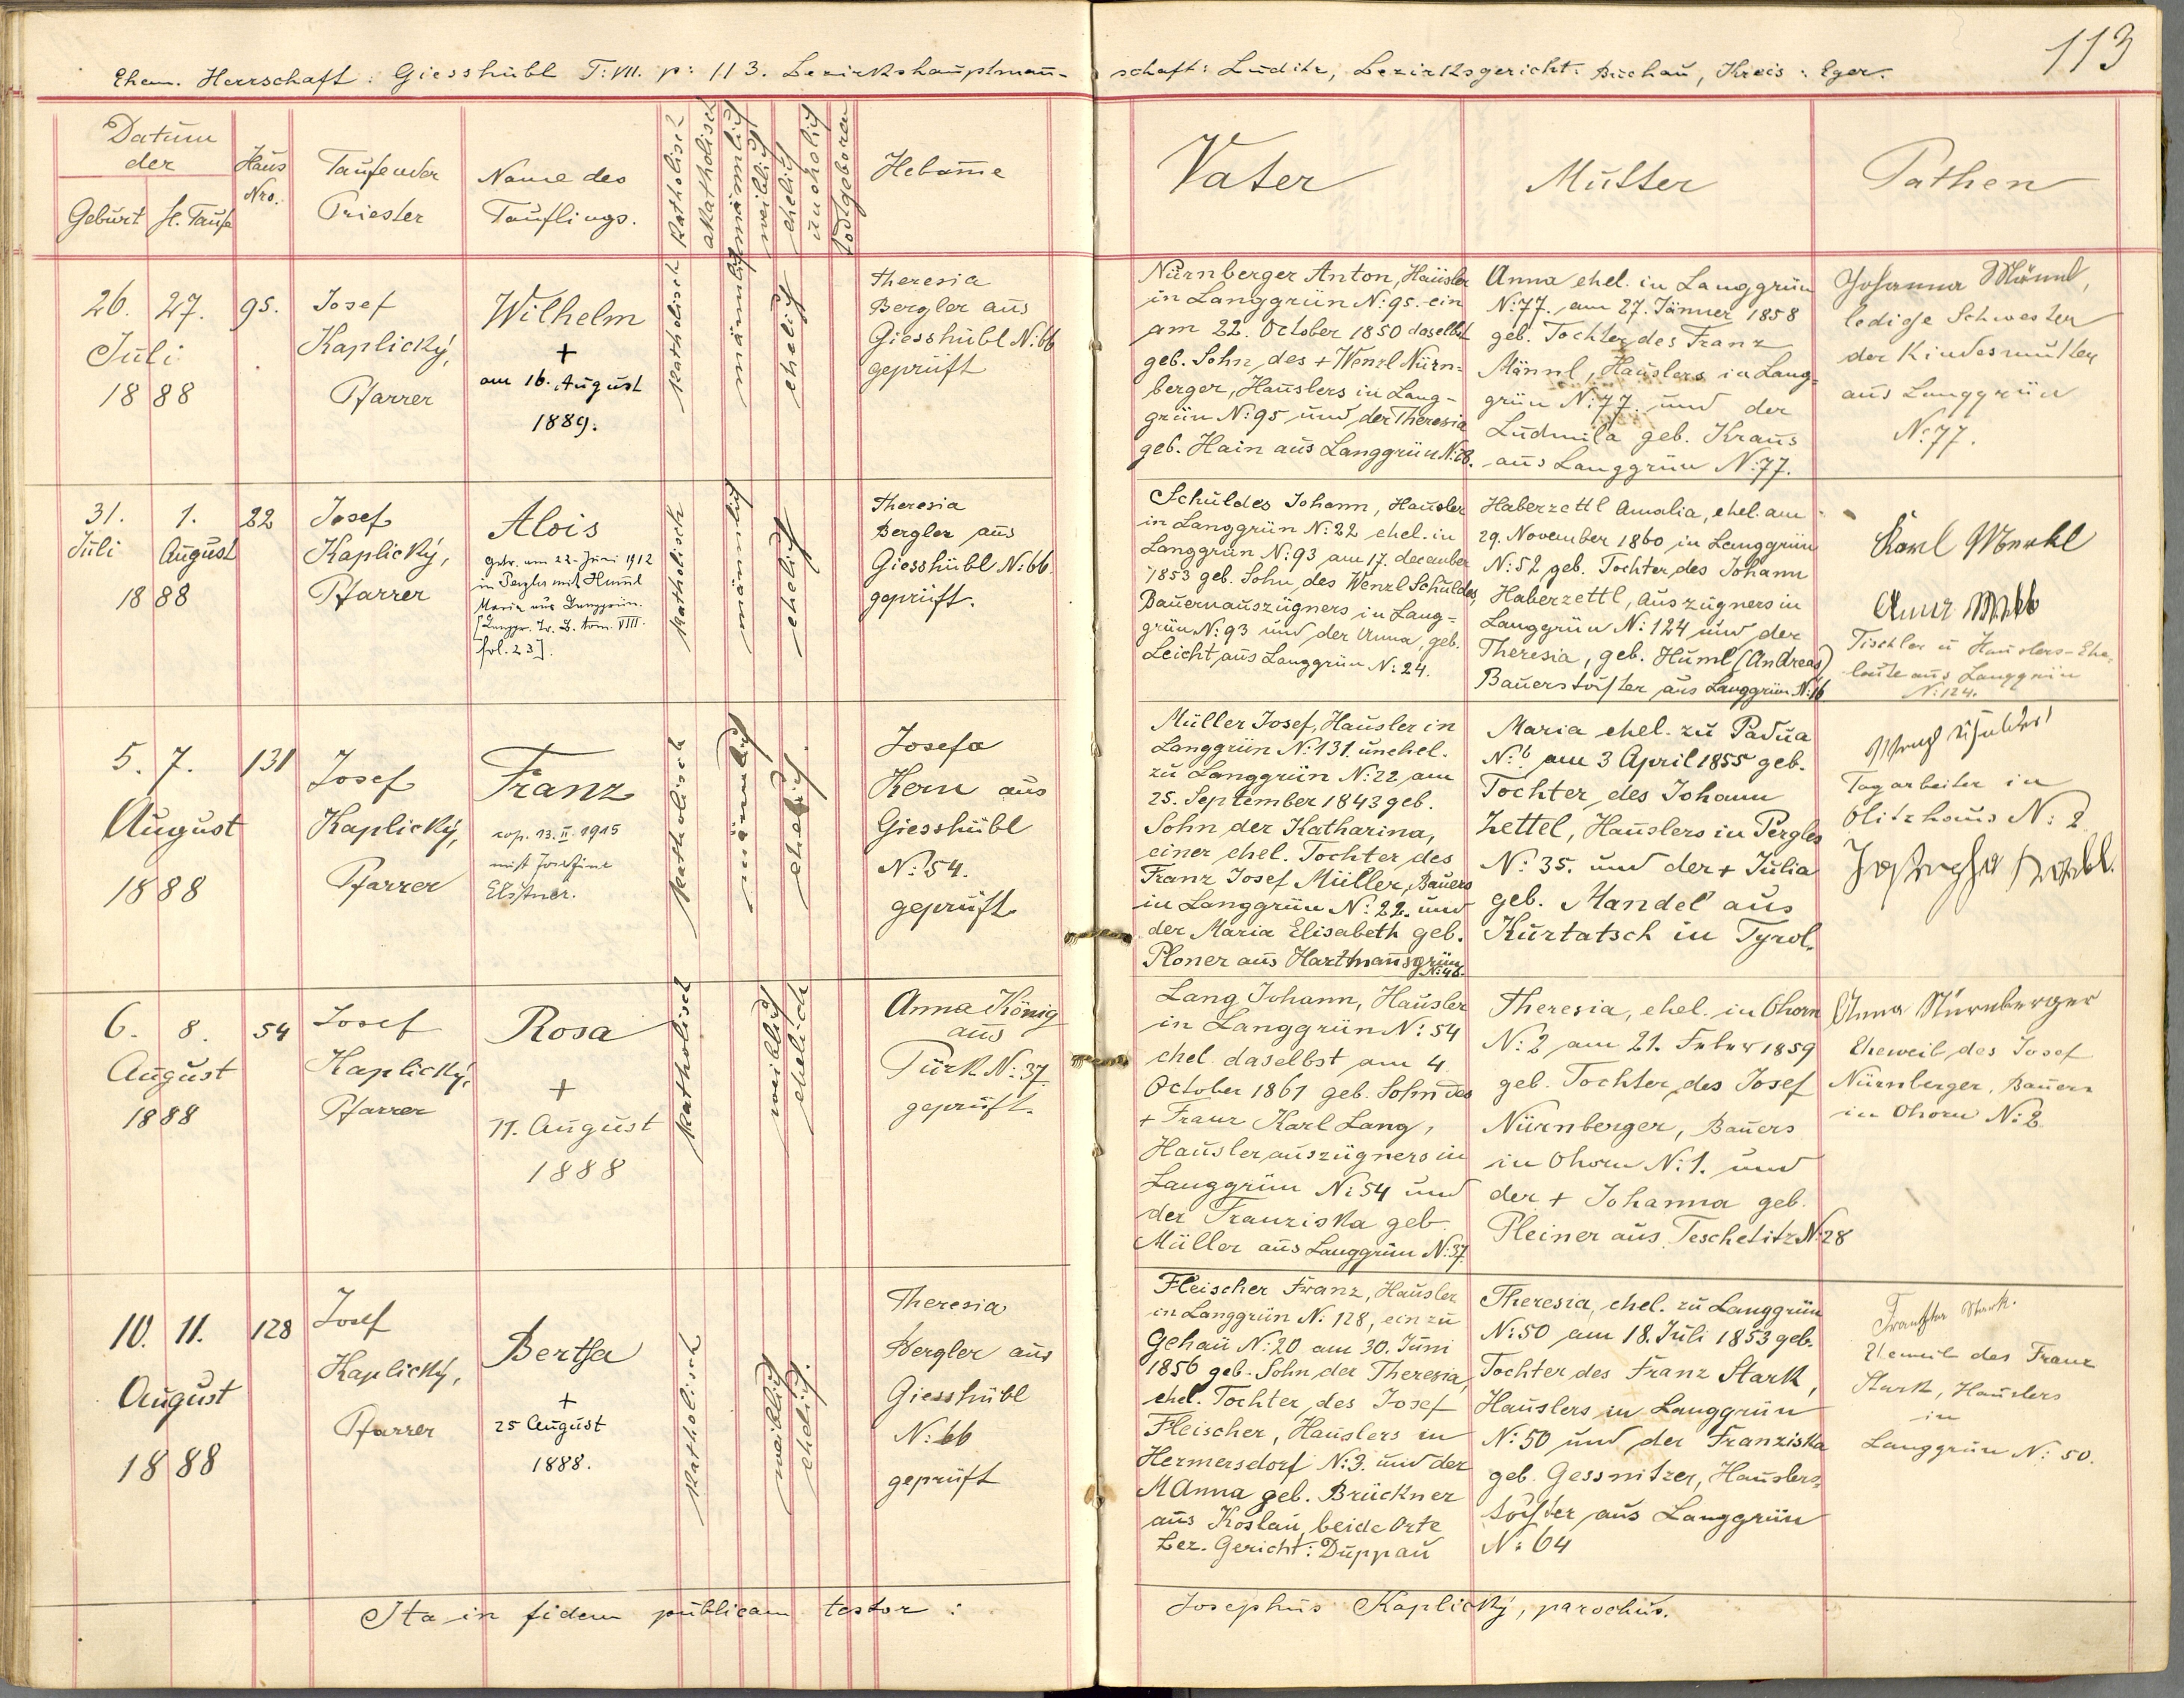 113
Ehem. Herrschaft: Giesshübl T: VII. p: 113. Bezirkshauptman̄- schaft: Luditz, Bezirksgericht: Buchau, Kreis: Eger.
Datum
der
Geburt hl. Taufe
Haus
Nro.
Taufender
Priester
Name des
Täuflings.
Katholisch
akatholisch
männlich
weiblich
ehelich
unehelich
todtgeboren
Hebam̄e
Vater
Mutter
Pathen
26. 27.
Juli
1888
95.
Josef
Kaplický,
Pfarrer
Wilhelm
+
am 16. August
1889.
Katholisch
männlich
ehelich
Theresia
Bergler aus
Giesshübl N: 66
geprüft
Nürnberger Anton, Häusler
in Langgrün N: 95. ein
am 22. October 1850 daselbst
geb. Sohn des + Wenzl Nürn=
berger, Häuslers in Lang-
grün N: 95 und der Theresia
geb. Hain aus Langgrün N: 28.
Anna ehel. in Langgrün
N: 77. am 27. Jänner 1858
geb. Tochter des Franz
Männl, Häuslers in Lang=
grün N: 77. und der
Ludmila geb. Kraus
aus Langgrün N: 77.
Johanna Männl,
ledige Schwester
der Kindesmutter
aus Langgrün
N: 77.
31. 1.
Juli August
1888
22
Josef
Kaplický,
Pfarrer
Alois
getr. am 22. Juni 1912
in Pergles mit Huml
Maria aus Langgrün.
[Langgr. Tr. B. tom. VIII.
fol. 23].
Katholisch
männlich
ehelich
Theresia
Bergler aus
Giesshübl N: 66.
geprüft.
Schuldes Johann, Häusler
in Langgrün N: 22 ehel. in
Langgrün N: 93 am 17. december
1853 geb. Sohn des Wenzl Schuldes,
Bauernauszügners in Lang=
grün N: 93 und der Anna, geb.
Leicht aus Langgrün N: 24.
Haberzettl Amalia, ehel. am
29. November 1860 in Langgrün
N: 52 geb. Tochter des Johann
Haberzettl, Auszügners in
Langgrün N: 124 und der
Theresia, geb. Huml (Andreas)
Bauerstochter aus Langgrün N: 16
Karl
Tischler u Häuslers-Ehe-
leute aus Langgrün
N: 124.
5. 7.
August
1888
131
Josef
Kaplický,
Pfarrer
Franz
cop. 13. II. 1915
mit Josefine
Elstner.
Katholisch
männlich
ehelich.
Josefa
Kern aus
Giesshübl
N: 54.
geprüft
Müller Josef, Häusler in
Langgrün N: 131. unehel.
zu Langgrün N: 22 am
25. September 1843 geb.
Sohn der Katharina,
einer ehel. Tochter des
Franz Josef Müller, Bauers
in Langgrün N: 22. und
der Maria Elisabeth geb.
Ploner aus Hartmansgrün
N: 46.
Maria ehel. zu Padua
N: 6 am 3 April 1855 geb.
Tochter des Johann
Zettel, Häuslers in Pergles
N: 35. und der + Julia
geb. Mandel aus
Kurtatsch in Tyrol.
Tagarbeiter in
Olitzhaus N: 2
6. 8.
August
1888
54
Josef
Kaplický,
Pfarrer
Rosa
+
11. August
1888
Katholisch
weiblich
ehelich
Anna König
aus
Türk N: 37.
geprüft.
Lang Johann, Häusler
in Langgrün N: 54
ehel. daselbst am 4
October 1861 geb. Sohn des
+ Franz Karl Lang,
Häuslerauszügners in
Langgrün N: 54 und
der Franziska geb.
Müller aus Langgrün N: 37.
Theresia, ehel. in Ohorn
N: 2 am 21. Feber 1859
geb. Tochter des Josef
Nürnberger, Bauers
in Ohorn N: 1. und
der + Johanna geb.
Pleiner aus Teschetitz N: 28
Anna Nürnberger
Eheweib des Josef
Nürnberger, Bauers
in Ohorn N: 2
10. 11.
August
1888
128
Josef
Kaplický,
Pfarrer
Bertha
+
25 August
1888.
Katholisch
weiblich
ehelich.
Theresia
Bergler aus
Giesshübl
N: 66
geprüft
Fleischer Franz, Häusler
in Langgrün N: 128, ein zu
Gehau N: 20 am 30. Juni
1856 geb. Sohn der Theresia,
ehel. Tochter des Josef
Fleischer, Häuslers in
Hermersdorf N: 3. und der
MAnna geb. Brückner
aus Koslau, beide Orte
Bez. Gericht: Duppau
Theresia, ehel. zu Langgrün
N: 50 am 18. Juli 1853 geb.
Tochter des Franz Stark,
Häuslers in Langgrün
N: 50 und der Franziska
geb. Gessnitzer, Häuslers-
tochter aus Langgrün
N: 64
Stark.
Eheweib des Franz
Stark, Häuslers
in
Langgrün N: 50.
Ita in fidem publicam testor: Josephus Kaplický, parochus.